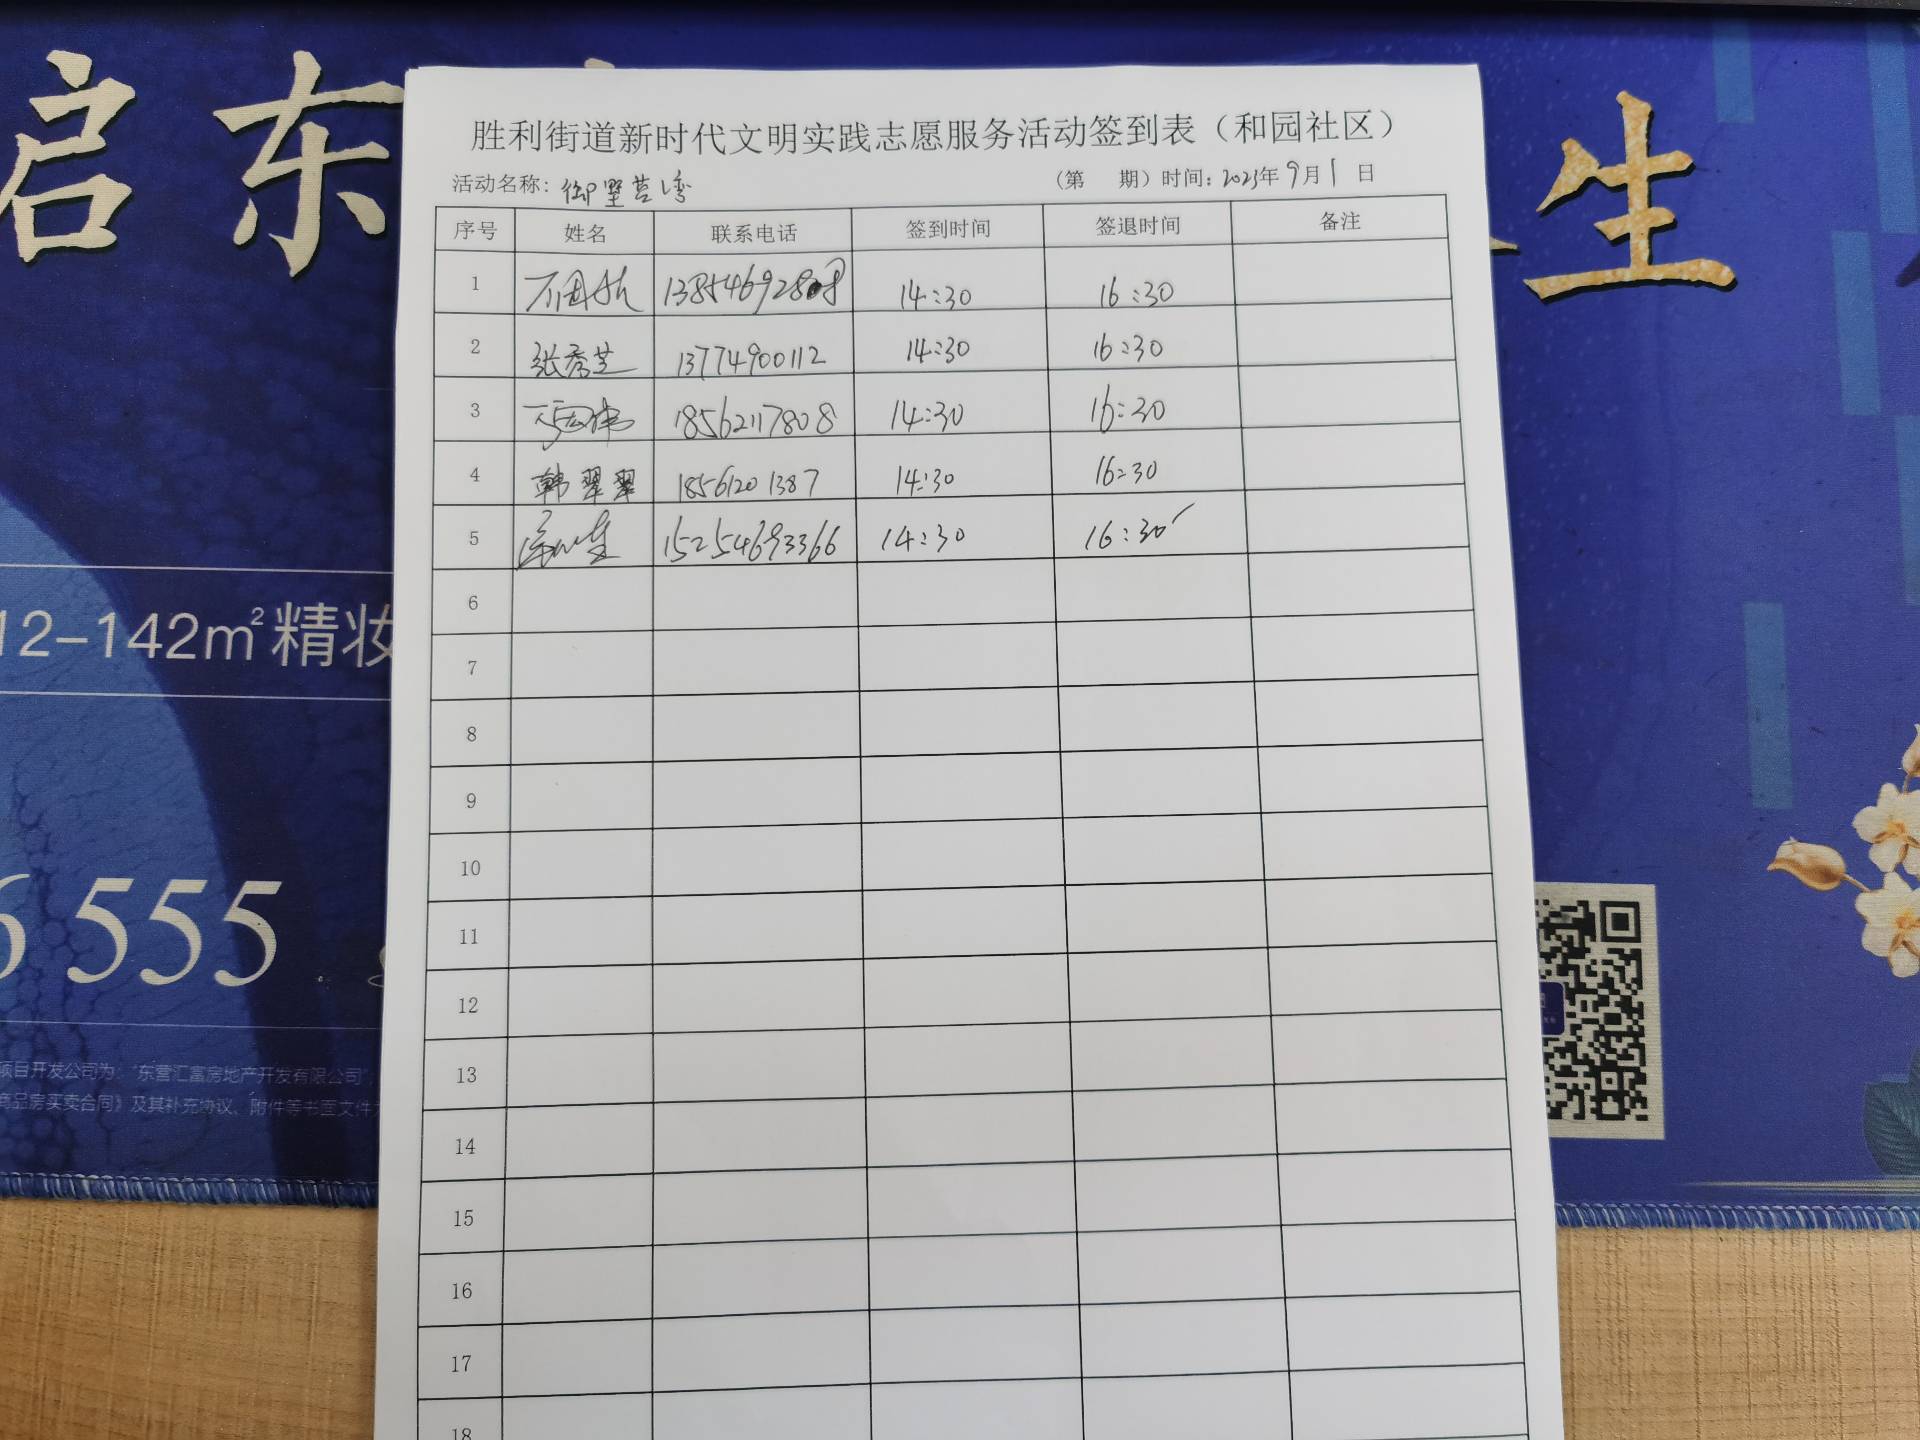 启东
生
12-142m²精妆
6555
项目开发公司为："东营汇富房地产开发有限公司"
商品房买卖合同》及其补充协议、附件等书面文件
胜利街道新时代文明实践志愿服务活动签到表（和园社区）
活动名称：御墅营湾 （第 期）时间：2023年9月1日
序号 姓名 联系电话 签到时间 签退时间 备注
1 14:30 16:30
2 张秀芝 13774900112 14:30 16:30
3 18562117808 14:30 16:30
4 韩翠翠 18561201387 14:30 16:30
5 15254693366 14:30 16:30
6
7
8
9
10
11
12
13
14
15
16
17
18